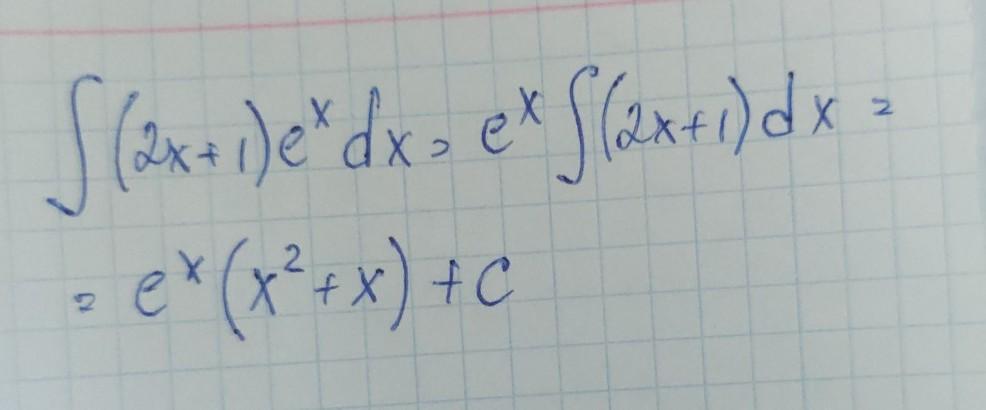 ∫(2x+1)eˣdx = eˣ∫(2x+1)dx =
= eˣ(x²+x)+C